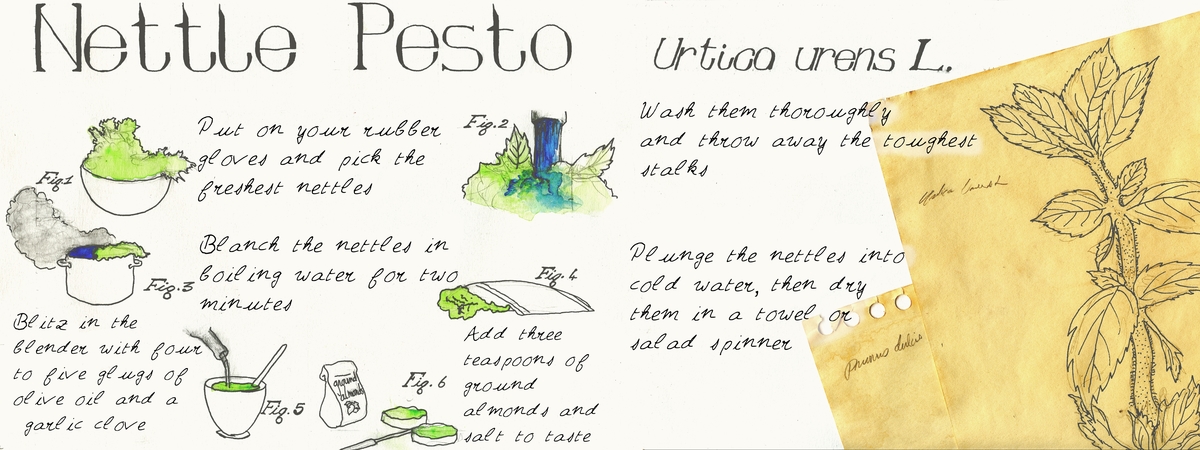 Nettle Pesto
Urtica urens L.
Fig.1
Put on your rubber
gloves and pick the
freshest nettles
Fig.2
Wash them thoroughly
and throw away the toughest
stalks
Fig.3
Blanch the nettles in
boiling water for two
minutes
Fig.4
Plunge the nettles into
cold water, then dry
them in a towel or
salad spinner
Blitz in the
blender with four
to five glugs of
olive oil and a
garlic clove
Fig.5
ground
almonds
Fig.6
Add three
teaspoons of
ground
almonds and
salt to taste
Prunus dulcis